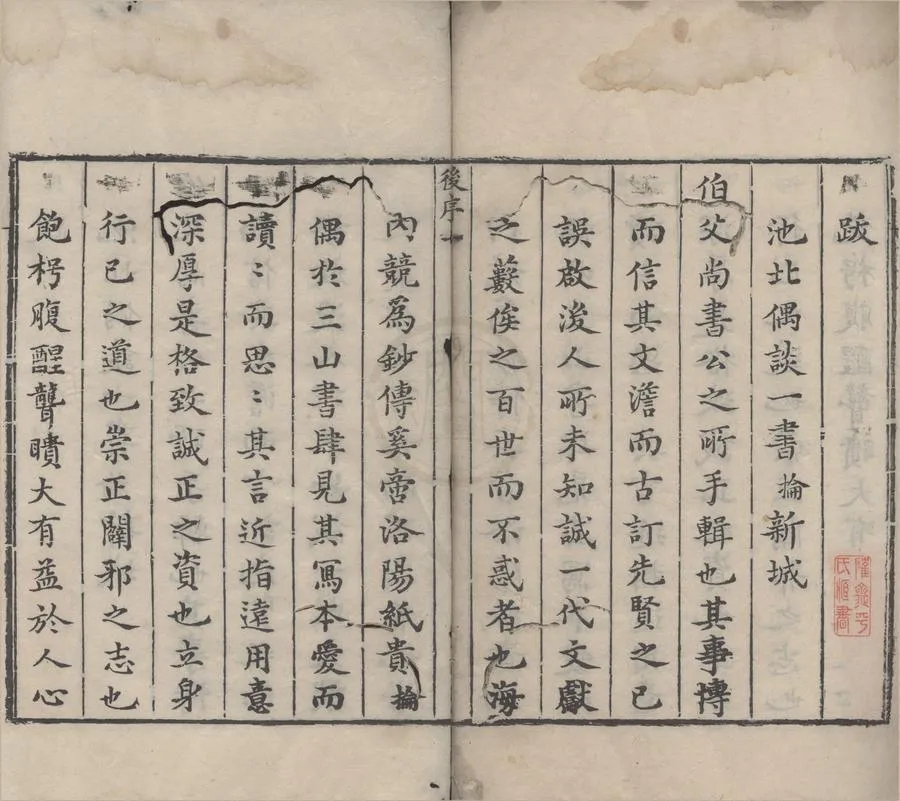 跋
池北偶談一書掄新城
伯父尚書公之所手輯也其事博
而信其文澹而古訂先賢之已
誤啟後人所未知誠一代文獻
之藪俟之百世而不惑者也海
後序 一
內競為鈔傳奚啻洛陽紙貴掄
偶於三山書肆見其寫本愛而
讀〻而思〻其言近指遠用意
深厚是格致誠正之資也立身
行已之道也崇正闢邪之志也
飽枵腹醒聾瞶大有益於人心